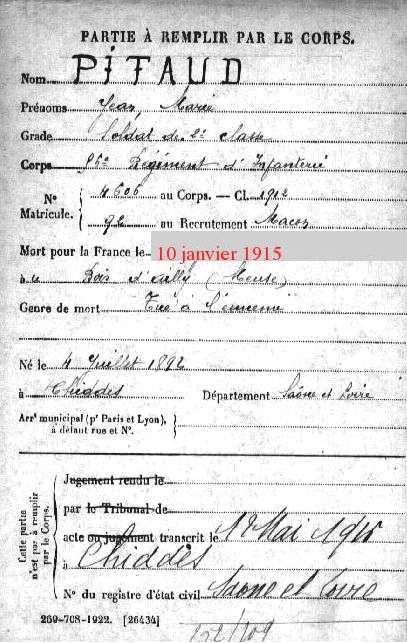 PARTIE À REMPLIR PAR LE CORPS.
Nom PITAUD
Prénoms Jean Marie
Grade Soldat de 2e classe
Corps 95e Régiment d'Infanterie
N° Matricule. { 4606 au Corps. — Cl. 1912
92 au Recrutement Macon
Mort pour la France le 10 janvier 1915
à Bois d'Ailly (Meuse)
Genre de mort Tué à l'ennemi
Né le 4 Juillet 1892
à Chiddes Département Saône et Loire
Arrt municipal (pr Paris et Lyon), à défaut rue et N°. }
Cette partie n'est pas à remplir par le Corps.
Jugement rendu le
par le Tribunal de
acte ou jugement transcrit le Mai
à Chiddes
Saone et Loire
N° du registre d'état civil
269-708-1922. [26434]